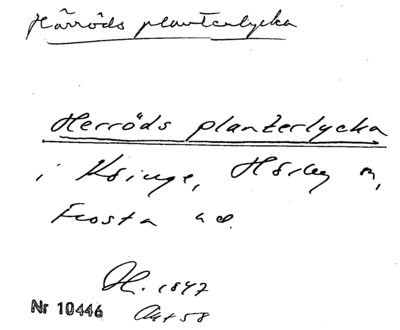 Härröds planterlycka
Herröds planterlycka
i Köinge, Hörby sn,
Frosta hd.
H. 1847
Nr 10446 Akt 58